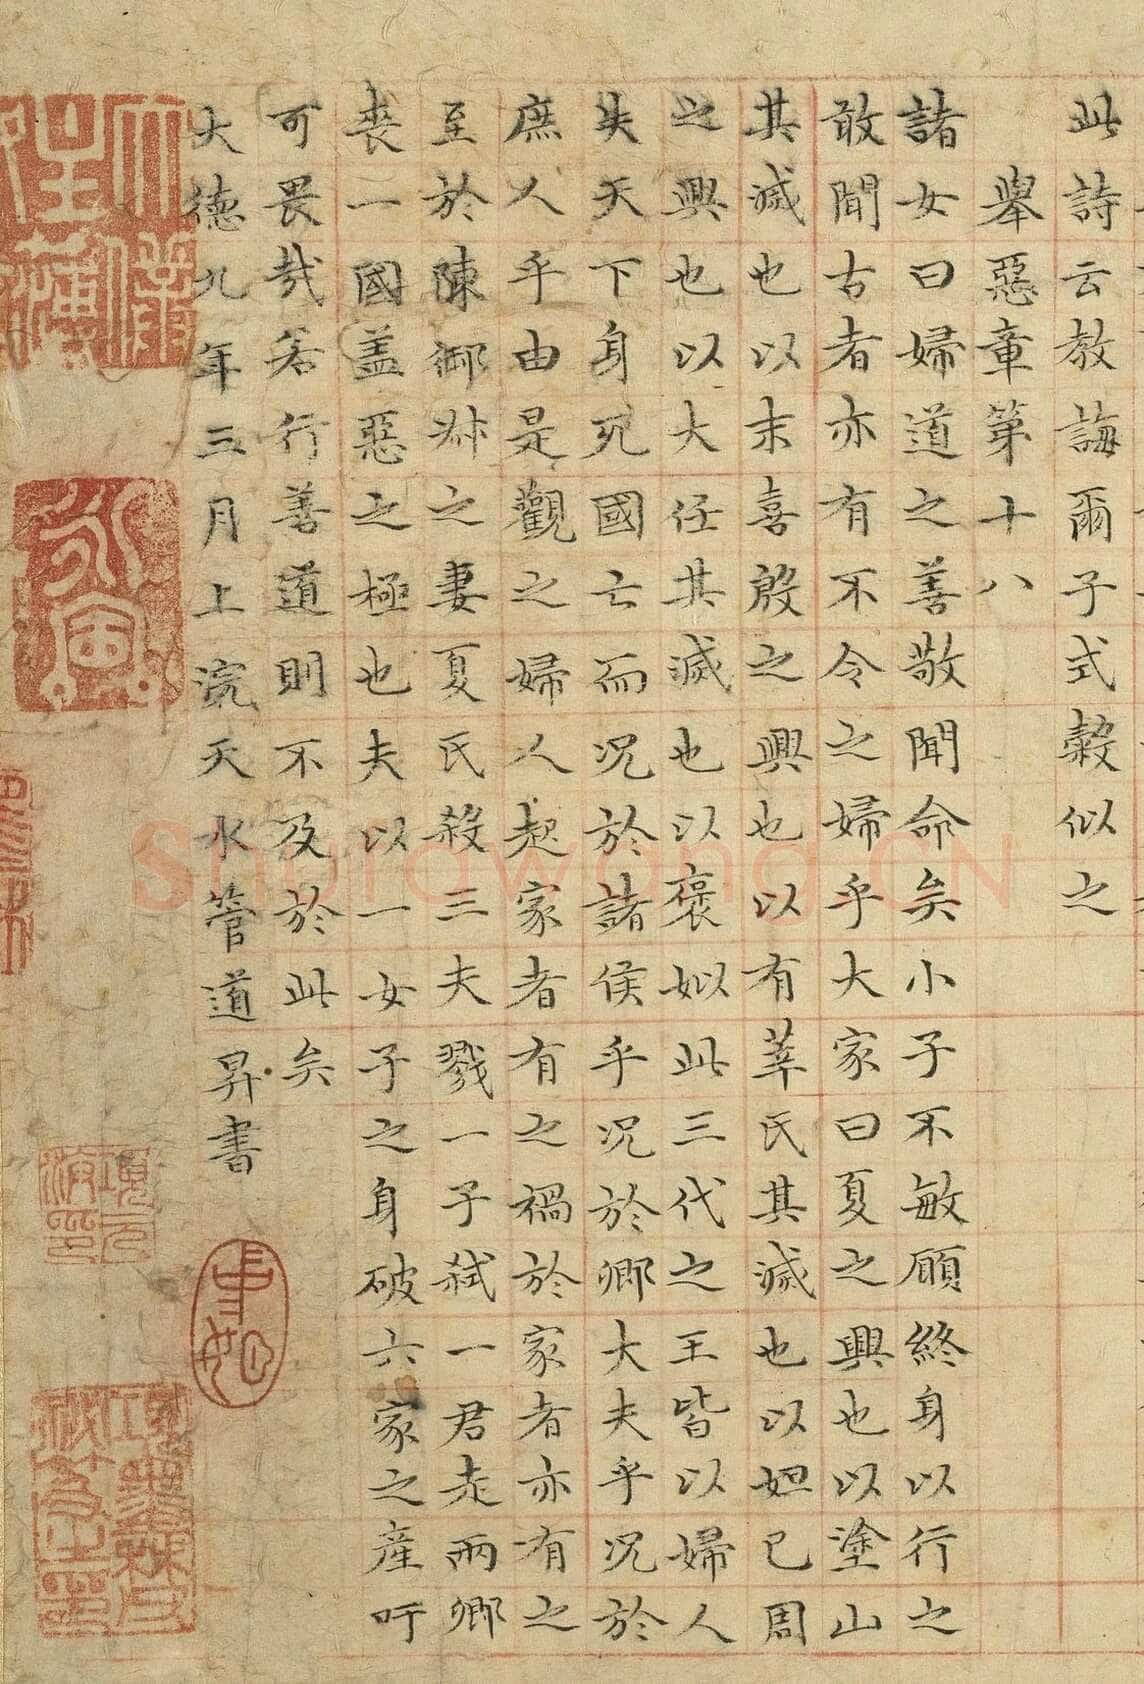 此詩云教誨爾子式穀似之
舉惡章第十八
諸女曰婦道之善敬聞命矣小子不敏願終身以行之
敢聞古者亦有不令之婦乎大家曰夏之興也以塗山
其滅也以末喜殷之興也以有莘氏其滅也以妲己周
之興也以大任其滅也以褒姒此三代之王皆以婦人
失天下身死國亡而況於諸侯乎況於卿大夫乎況於
庶人乎由是觀之婦人起家者有之禍於家者亦有之
至於陳御叔之妻夏氏殺三夫戮一子弒一君走兩卿
喪一國盖惡之極也夫以一女子之身破六家之產吁
可畏哉若行善道則不及於此矣
大德九年三月上浣天水管道昇書
Shufawang.CN